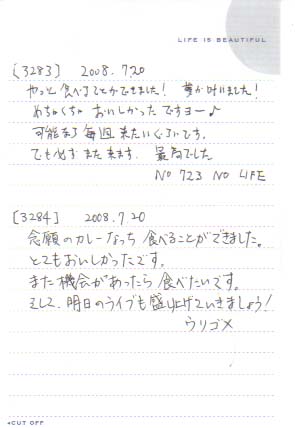 LIFE IS BEAUTIFUL
[3283] 2008.7.20
やっと食べることができました! 夢が叶いました!
めちゃくちゃ おいしかったですヨー♪
可能なら毎週来たいぐらいです。
でも必ずまた来ます。 最高でした
No 723 No LIFE
[3284] 2008.7.20
念願のカレーなっち食べることができました。
とてもおいしかったです。
また機会があったら食べたいです。
そして、明日のライブも盛り上げていきましょう!
ウリゴメ
◂CUT OFF